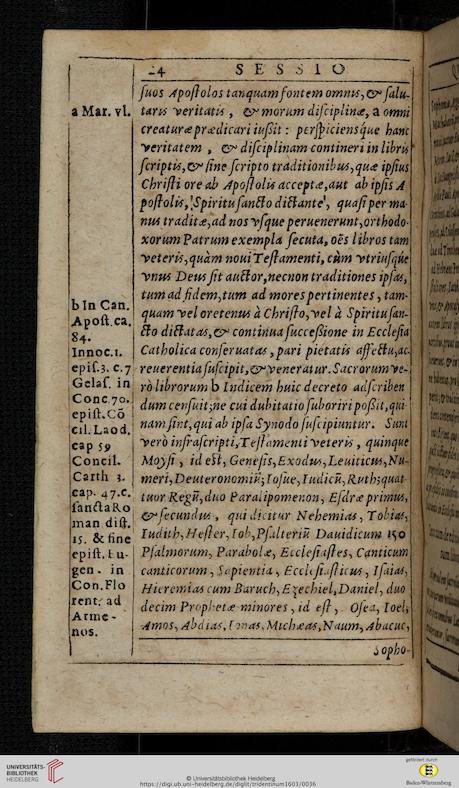 24 SESSIO
suos Apostolos tanquam fontem omnis, & salu-
a Mar. vl. taris veritatis, & morum disciplinæ, a omni
creaturæ prædicari iußit: perspiciensq́ue hanc
veritatem, & disciplinam contineri in libris
scriptis, & sine scripto traditionibus, quæ ipsius
Christi ore ab Apostolis acceptæ, aut ab ipsis A
postolis, Spiritu sancto dictante, quasi per ma
nus traditæ, ad nos vsque peruenerunt, orthodo-
xorum Patrum exempla secuta, oẽs libros tam
veteris, quàm noui Testamenti, cùm vtriusq́ue
vnus Deus sit auctor, necnon traditiones ipsas,
tum ad fidem, tum ad mores pertinentes, tam-
quam vel oretenus à Christo, vel à Spiritu san-
cto dictatas, & continua succeßione in Ecclesia
Catholica conseruatas, pari pietatis affectu, ac
reuerentia suscipit, & veneratur. Sacrorum ve-
rò librorum b Indicem huic decreto adscriben
dum censuit; ne cui dubitatio suboriri poßit, qui-
nam sint, qui ab ipsa Synodo suscipiuntur. Sunt
verò infrascripti, Testamenti veteris, quinque
Moysi, id est, Genesis, Exodus, Leuiticus, Nu-
meri, Deuteronomiũ; Iosue, Iudicũ, Ruth; quat-
tuor Regũ, duo Paralipomenon, Esdræ primus,
& secundus, qui dicitur Nehemias, Tobias,
Iudith, Hester, Iob, Psalteriũ Dauidicum 150
Psalmorum, Parabolæ, Ecclesiastes, Canticum
canticorum, Sapientia, Ecclesiasticus, Isaias,
Hieremias cum Baruch, Ezechiel, Daniel, duo
decim Prophetæ minores, id est, Osea, Ioel,
Amos, Abdias, Ionas, Michæas, Naum, Abacuc,
Sopho-
b In Can.
Apost. ca.
84.
Innoc. 1.
epis. 3. c. 7
Gelas. in
Conc. 70.
epist. Cõ
cil. Laod.
cap 59
Concil.
Carth 3.
cap. 47. c.
sancta Ro
man dist.
15. & fine
epist. Eu-
gen. in
Con. Flo
rent. ad
Arme-
nos.
UNIVERSITÄTS-
BIBLIOTHEK
HEIDELBERG
© Universitätsbibliothek Heidelberg
https://digi.ub.uni-heidelberg.de/diglit/tridentinum1603/0036
gefördert durch
Baden-Württemberg